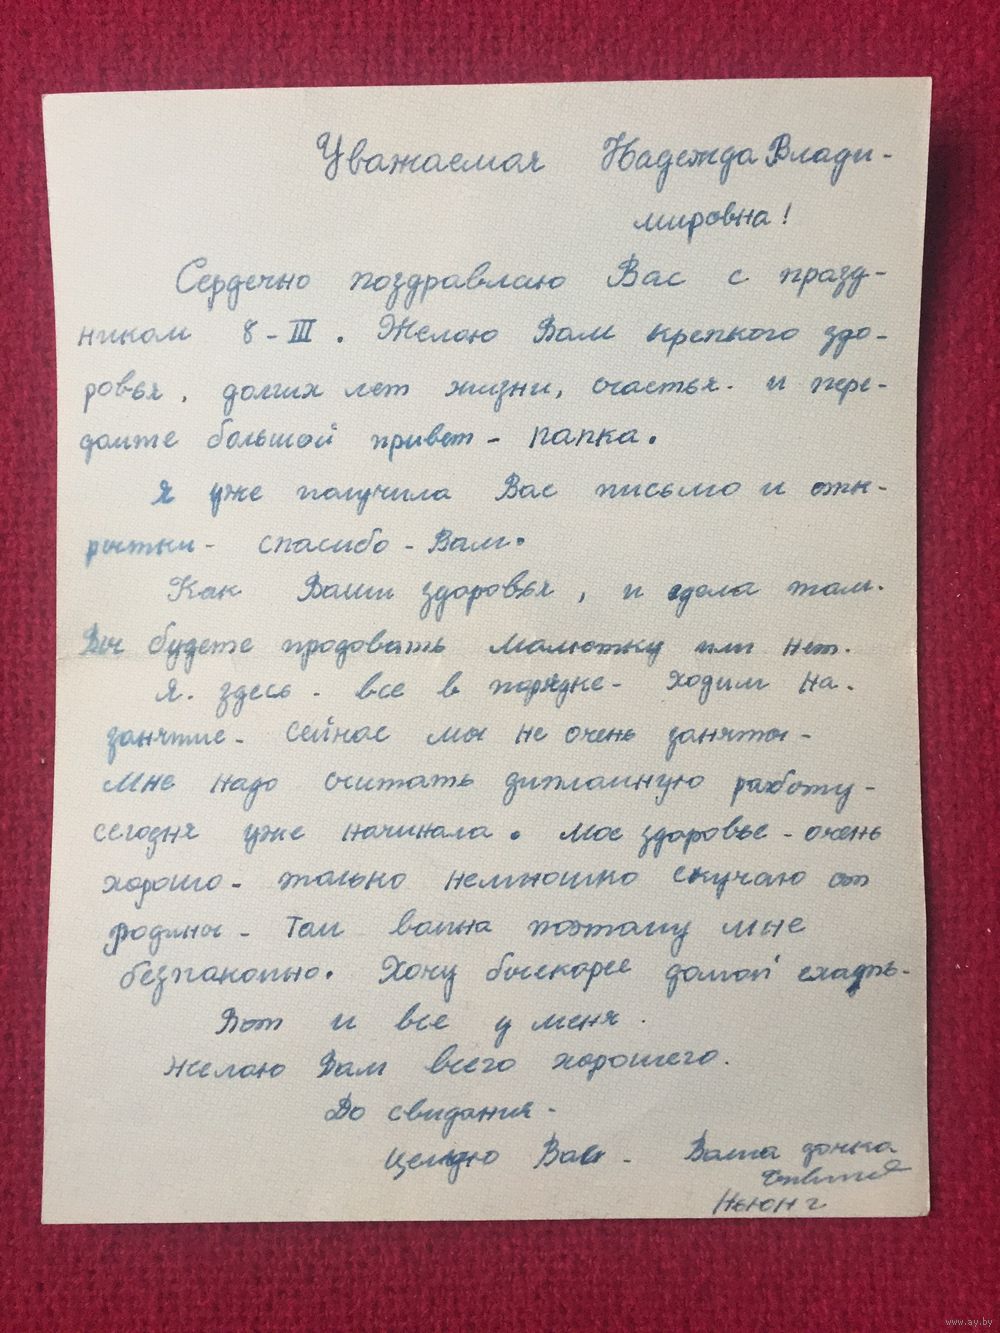 Уважаемая Надежда Влади-
мировна!
Сердечно поздравлаю Вас с празд-
ником 8-III. Желаю Вам крепкого здо-
ровья, долгих лет жизни, счастья. и пере-
дайте большой привет - папка.
Я уже получила Вас письмо и отк-
рытки - спасибо - Вам.
Как Ваши здоровья, и дела там.
Вы будете продовать малютку или нет.
Я. здесь - все в порядке - ходим на.
занятие - сейчас мы не очень заняты -
Мне надо считать дипламную работу -
сегодня уже начинала. Мое здоровье - очень
хорошо - только немношко скучаю от
родины - Там вайна поэтаму мне
безпакойно. Хочу быскарее дамой ехать.
Вот и все у меня.
Желаю Вам всего хорошего.
До свидания -
Целую Вас - Ваша дочка
Ньюнг
www.ay.by